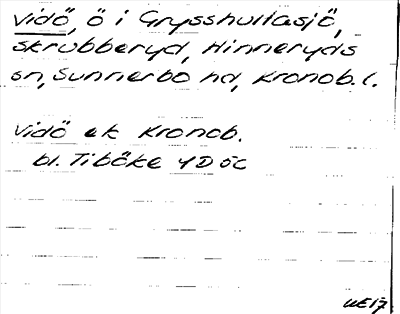 Vidö, ö i Grysshultasjö,
Skrubberyd, Hinneryds
sn, Sunnerbo hd, Kronob. l.
Vidö ek Kronob.
bl. Tiböke 4D 5c
UE17